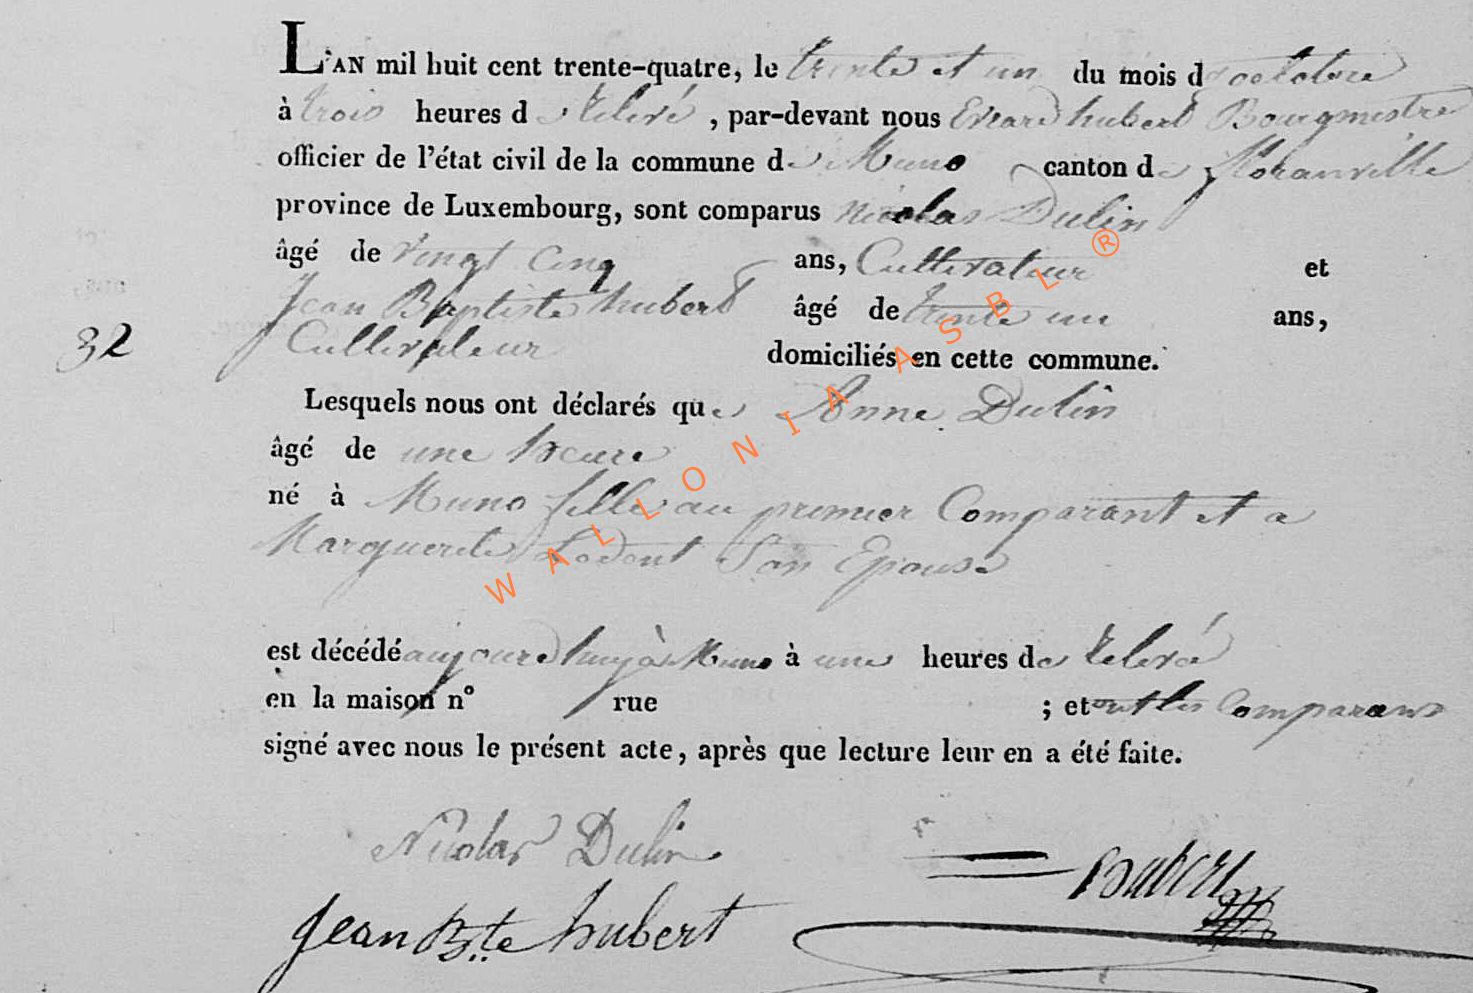 L'AN mil huit cent trente-quatre, le trente et un du mois d'octobre
à trois heures de relevé, par-devant nous Evrard hubert Bourgmestre
officier de l'état civil de la commune de Muno canton de florenville
province de Luxembourg, sont comparus nicolas Dulin
âgé de vingt cinq ans, Cultivateur et
Jean Baptiste hubert âgé de trente un ans,
32 Cultivateur domiciliés en cette commune.
Lesquels nous ont déclarés que Anne Dulin
âgé de une heure
né à Muno fille au premier Comparant et a
Marguerite Lodent Son Epouse
est décédé aujourd'huy à Muno à une heures de relevé
en la maison n° rue ; et ont les Comparans
signé avec nous le présent acte, après que lecture leur en a été faite.
Nicolas Dulin
hubert
Jean Bte hubert
WALLONIA ASBL ®